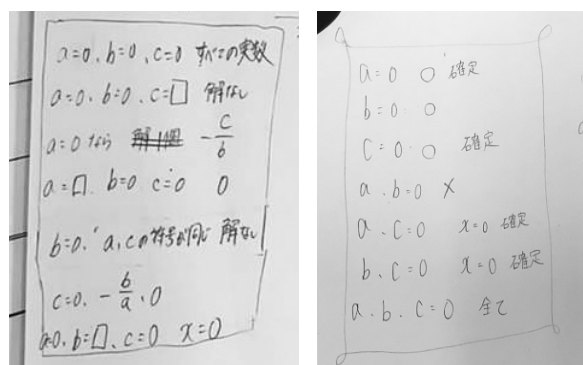 a=0、b=0、c=0 すべての実数
a=0、b=0、c=□ 解なし
a=0なら -c/b
a=□、b=0 c=0 0
b=0、a,cの符号が同じ 解なし
c=0、-b/a、0
a=0、b=□、c=0 x=0
a=0 0 確定
b=0 0
c=0 0 確定
a、b=0 ×
a、c=0 x=0 確定
b、c=0 x=0 確定
a、b、c=0 全て